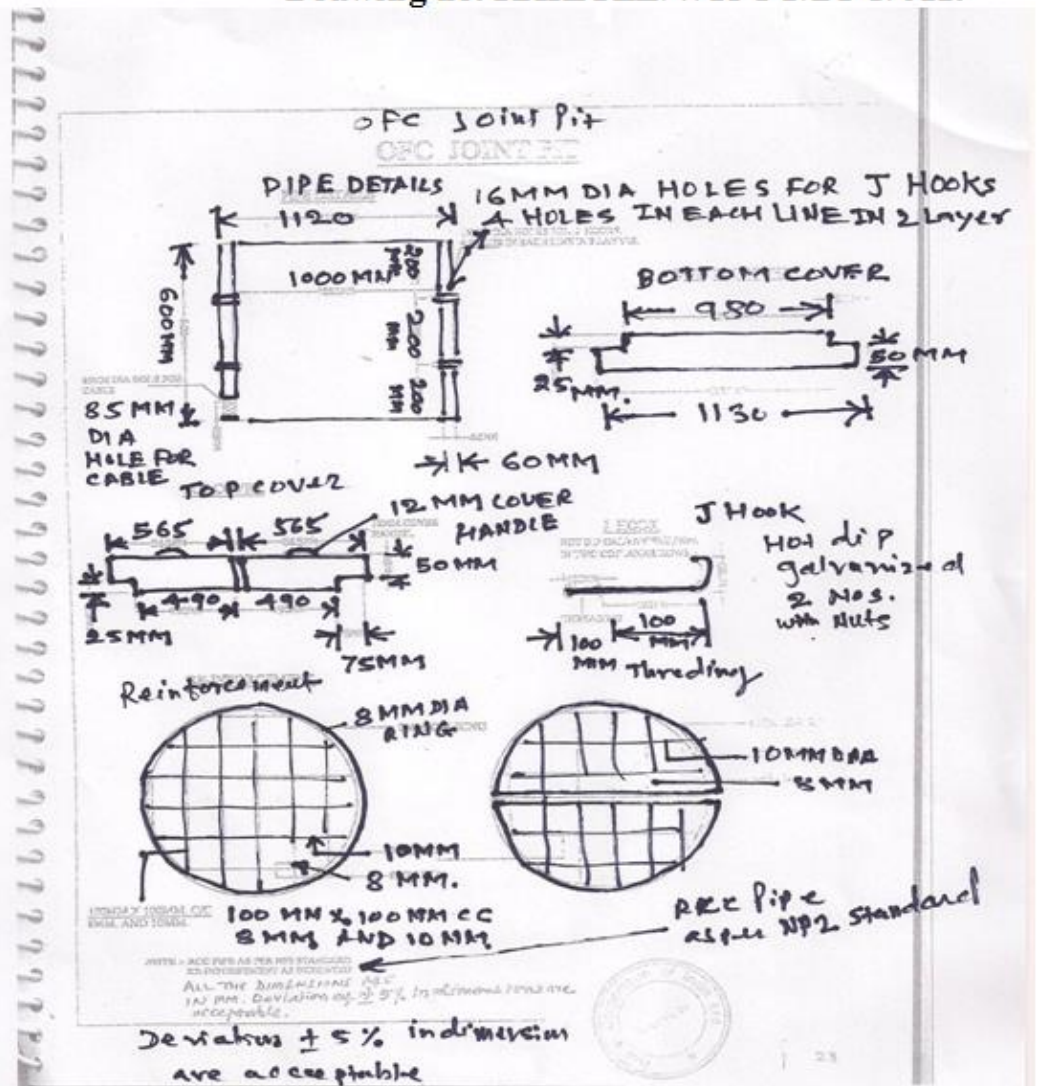 OFC Joint Pit
OFC JOINT PIT
PIPE DETAILS
1120
16MM DIA HOLES FOR J HOOKS
4 HOLES IN EACH LINE IN 2 Layer
1000MM
600MM
200 MM
200 MM
200 MM
85MM
DIA
HOLE FOR
CABLE
60MM
BOTTOM COVER
980
25MM.
50MM
1130
TOP COVER
12 MM COVER
HANDLE
565
565
50MM
490
490
25MM
75MM
J HOOK
Hot dip
galvanized
2 Nos.
with Nuts
100
MM
100
MM
Threding
Reinforcement
8MMDIA
RING
10MM
8 MM.
100 MM X 100MM CC
8MM AND 10MM
10MM DIA
8MM
RCC Pipe
as per NP2 Standard
ALL THE DIMENSIONS ARE
IN MM. Deviation of ± 5% in dimensions are
acceptable.
Deviatus ± 5% indimersion
are acceptable
23